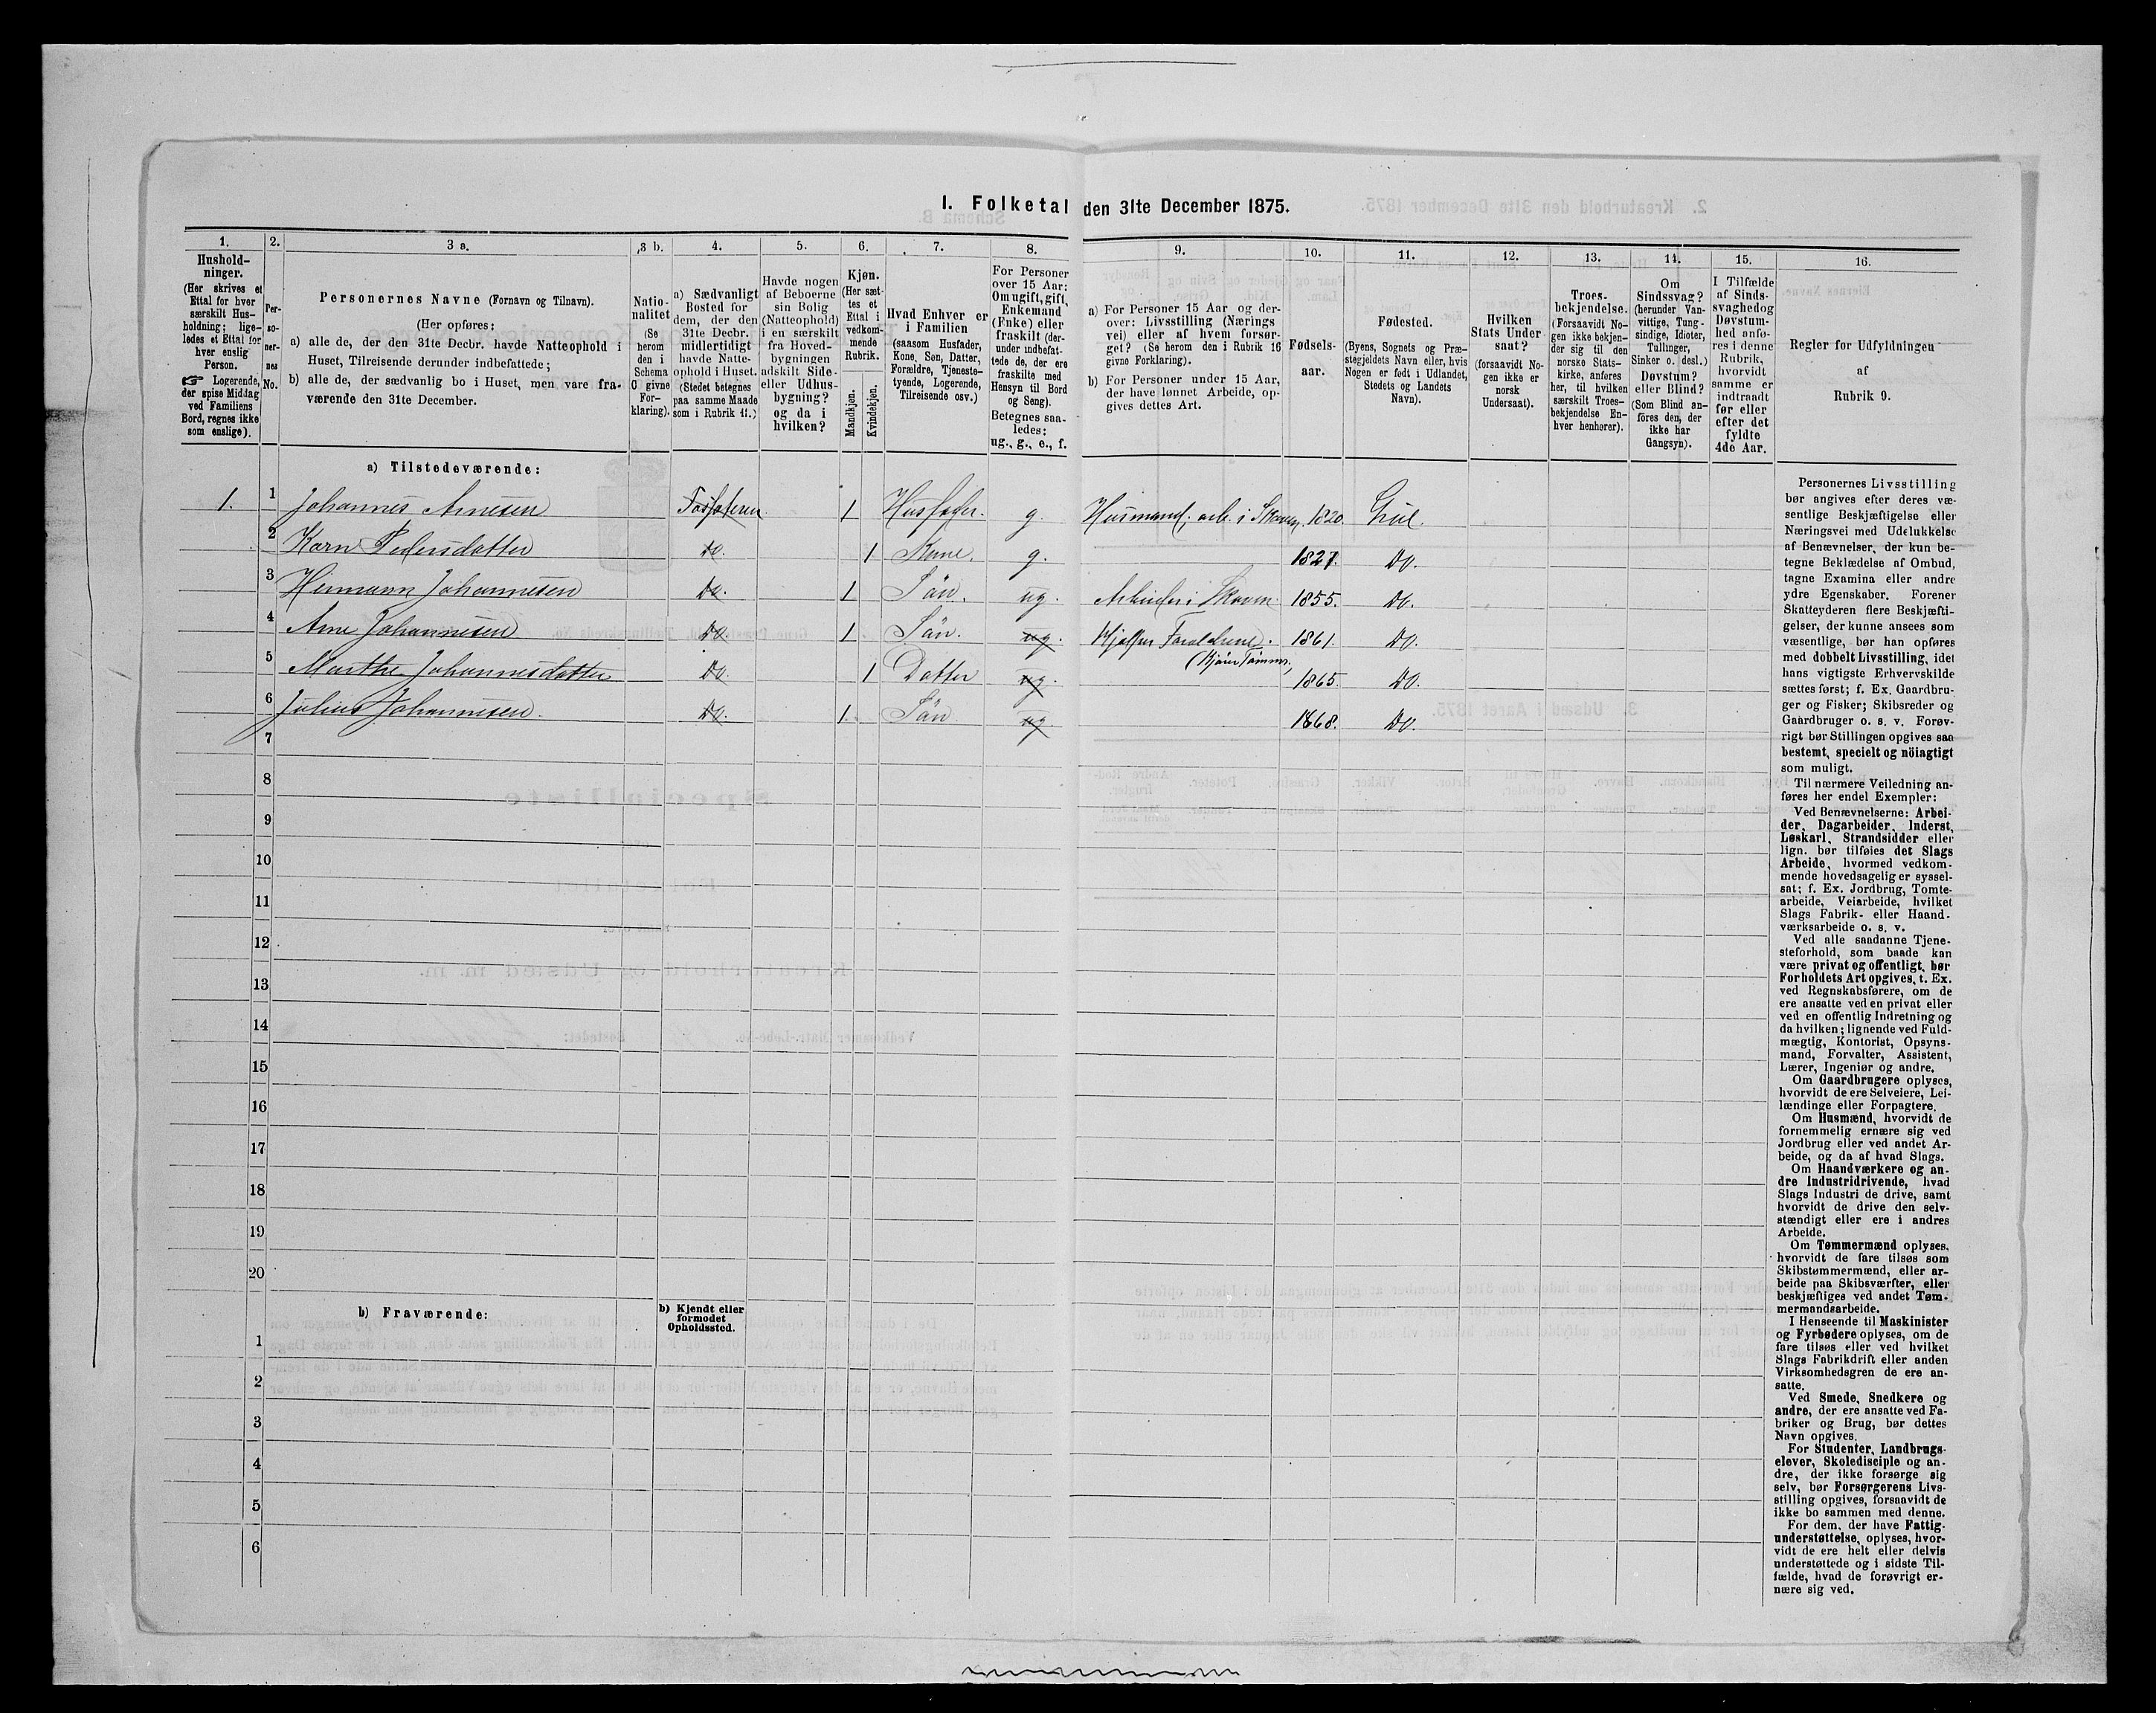 I. Folketal den 31te December 1875.
1.
Hushold-
ninger.
(Her skrives et
Ettal for hver
særskilt Hus-
holdning; lige-
ledes et Ettal for
hver enslig
Person.
☞ Logerende,
der spise Middag
ved Familiens
Bord, regnes ikke
som enslige).
2.
Per-
so-
ner-
nes
No.
3 a.
Personernes Navne (Fornavn og Tilnavn).
(Her opføres:
a) alle de, der den 31te Decbr. havde Natteophold i
Huset, Tilreisende derunder indbefattede;
b) alle de, der sædvanlig bo i Huset, men vare fra-
værende den 31te December.
3 b.
Natio-
nalitet
(Se
herom
den i
Schema
C givne
For-
klaring).
4.
a) Sædvanligt
Bosted for
dem, der den
31te Decbr.
midlertidigt
havde Natte-
ophold i Huset.
(Stedet betegnes
paa samme Maade
som i Rubrik 11.)
5.
Havde nogen
af Beboerne
sin Bolig
(Natteophold)
i en særskilt
fra Hoved-
bygningen
adskilt Side-
eller Udhus-
bygning?
og da i
hvilken?
6.
Kjøn.
(Her sæt-
tes et
Ettal i
vedkom-
mende
Rubrik.
Mandkjøn.
Kvindekjøn.
7.
Hvad Enhver er
i Familien
(saasom Husfader,
Kone, Søn, Datter,
Forældre, Tjeneste-
tyende, Logerende,
Tilreisende osv.)
8.
For Personer
over 15 Aar:
Om ugift, gift,
Enkemand
(Enke) eller
fraskilt (der-
under indbefat-
tede de, der ere
fraskilte med
Hensyn til Bord
og Seng).
Betegnes saa-
ledes:
ug., g., e., f.
9.
a) For Personer 15 Aar og der-
over: Livsstilling (Nærings
vei) eller af hvem forsør-
get? (Se herom den i Rubrik 16
givne Forklaring).
b) For Personer under 15 Aar,
der have lønnet Arbeide, op-
gives dettes Art.
10.
Fødsels-
aar.
11.
Fødested.
(Byens, Sognets og Præ-
stegjeldets Navn eller, hvis
Nogen er født i Udlandet,
Stedets og Landets
Navn).
12.
Hvilken
Stats Under
saat?
(forsaavidt No-
gen ikke er
norsk
Undersaat).
13.
Troes-
bekjendelse.
(Forsaavidt No-
gen ikke bekjen-
der sig til den
norske Stats-
kirke, anføres
her, til hvilken
særskilt Troes-
bekjendelse En-
hver henhører).
14.
Om
Sindssvag?
(herunder Van-
vittige, Tung-
sindige, Idioter,
Tullinger,
Sinker o. desl.)
Døvstum?
eller Blind?
(Som Blind an-
føres den, der
ikke har
Gangsyn).
15.
I Tilfælde
af Sinds-
svaghed og
Døvstum-
hed anfø-
res i denne
Rubrik,
hvorvidt
samme er
indtraadt
før eller
efter det
fyldte
4de Aar.
16.
Regler for Udfyldningen
af
Rubrik 9.
a) Tilstedeværende:
1. 1 Johannes Arnesen 1 Husfader. g. Husmand, arb. i Skoven 1820.
2 Karn Pedersdatter Do. 1 Kone g. 1827. Do.
3 Hermann Johannesen Do. 1 Sön. ug. Arbeider i Skoven 1855. Do.
4 Arne Johannesen Do. 1 Sön. ug. Hjælper Forældrene. 1861. Do.
(Kjörer Tömmer)
5 Marthe Johannesdatter Do. 1 Datter ug. 1865. Do.
6 Julius Johannesen. Do. 1 Sön ug. 1868. Do.
7
8
9
10
11
12
13
14
15
16
17
18
19
20
b) Fraværende:
b) Kjendt eller
formodet
Opholdssted.
1
2
3
4
5
6
Personernes Livsstilling
bør angives efter deres væ-
sentlige Beskjæftigelse eller
Næringsvei med Udelukkelse
af Benævnelser, der kun be-
tegne Beklædelse af Ombud,
tagne Examina eller andre
ydre Egenskaber. Forener
Skatteyderen flere Beskjæfti-
gelser, der kunne ansees som
væsentlige, bør han opføres
med dobbelt Livsstilling, idet
hans vigtigste Erhvervskilde
sættes først; f. Ex. Gaardbru-
ger og Fisker; Skibsreder og
Gaardbruger o. s. v. Forøv-
rigt bør Stillingen opgives saa
bestemt, specielt og nöiagtigt
som muligt.
Til nærmere Veiledning an-
føres her endel Exempler:
Ved Benævnelserne: Arbei-
der, Dagarbeider, Inderst,
Løskarl, Strandsidder eller
lign. bør tilføies det Slags
Arbeide, hvormed vedkom-
mende hovedsagelig er syssel-
sat; f. Ex. Jordbrug, Tomte-
arbeide, Veiarbeide, hvilket
Slags Fabrik- eller Haand-
værksarbeide o. s. v.
Ved alle saadanne Tjene-
steforhold, som baade kan
være privat og offentligt, bør
Forholdets Art opgives, t. Ex.
ved Regnskabsførere, om de
ere ansatte ved en privat eller
ved en offentlig Indretning og
da hvilken; lignende ved Fuld-
mægtig, Kontorist, Opsyns-
mand, Forvalter, Assistent,
Lærer, Ingeniør og andre.
Om Gaardbrugere oplyses,
hvorvidt de ere Selveiere, Lei-
lændinge eller Forpagtere.
Om Husmænd, hvorvidt de
fornemmelig ernære sig ved
Jordbrug eller ved andet Ar-
beide, og da af hvad Slags.
Om Haandværkere og an-
dre Industridrivende, hvad
Slags Industri de drive, samt
hvorvidt de drive den selv-
stændigt eller ere i andres
Arbeide.
Om Tømmermænd oplyses,
hvorvidt de fare tilsøs som
Skibstømmermænd, eller ar-
beide paa Skibsværfter, eller
beskjæftiges ved andet Tøm-
mermandsarbeide.
I Henseende til Maskinister
og Fyrbødere oplyses, om de
fare tilsøs eller ved hvilket
Slags Fabrikdrift eller anden
Virksomhedsgren de ere an-
satte.
Ved Smede, Snedkere og
andre, der ere ansatte ved Fa-
briker og Brug, bør dettes
Navn opgives.
For Studenter, Landbrugs-
elever, Skoledisciple og an-
dre, der ikke forsørge sig
selv, bør Forsørgerens Livs-
stilling opgives, forsaavidt de
ikke bo sammen med denne.
For dem, der have Fattig-
understøttelse, oplyses, hvor-
vidt de ere helt eller delvis
understøttede og i sidste Til-
fælde, hvad de forøvrigt er-
nære sig ved.